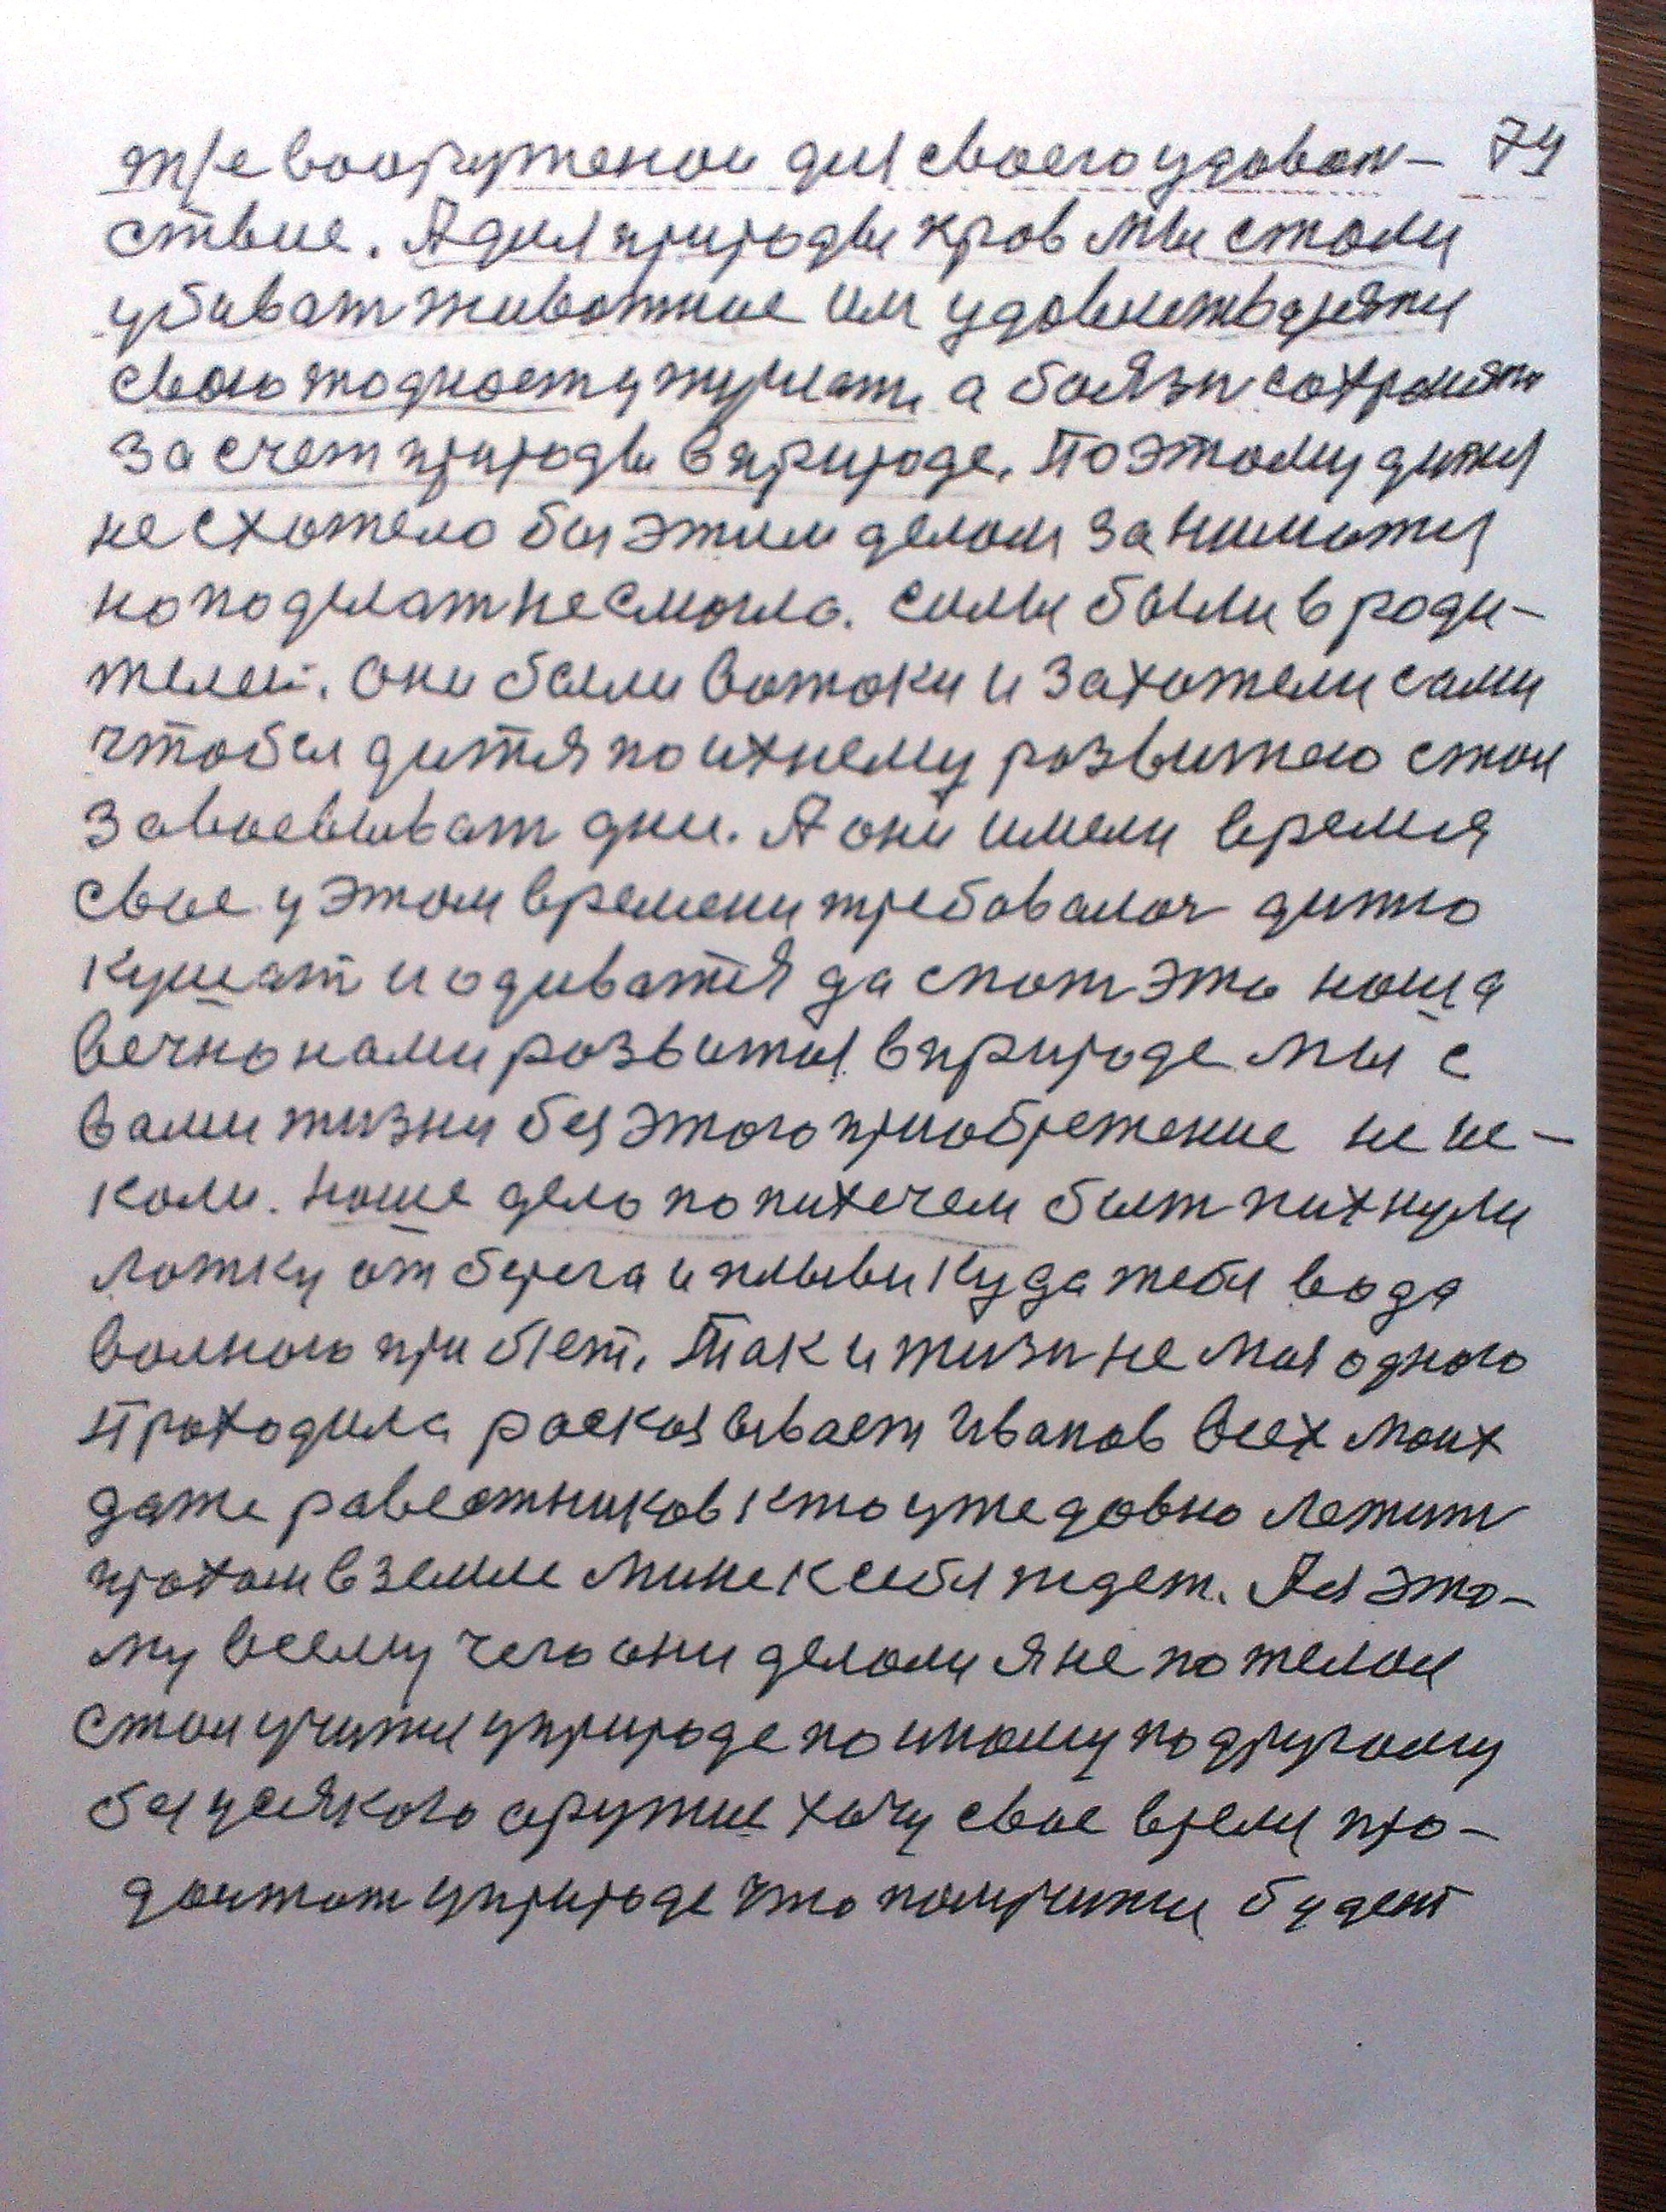 тре вооруженои для своего удовол- 74
ствие. А для природы кров мы стали
убиват животные им удовлетворяти
свою жодност а боязн сохранят
за счет природы в природе. Поэтому дитя
не схотело бы этим делом заниматя
но поделат не смогло. силы были в роди-
телей. они были вотоки и захотели сами
чтобы дитя по ихнему розвитю стал
завоевыват дни. А они имели время
свое у этом времени требовалос дитю
кушат и одиватя да спат это наша
вечно нами розвитя в природе мы с
вами жизни без этого приобретение не ис-
кали. наше дело по пихечем быт пихнули
лотку от берега и плыви куда тебя вода
волною прибет. Так и жизн не мая одного
проходила расказывает Иванов всех моих
даже равестников кто уже довно лежит
прахом в земле мине к себя ждет. А я это-
му всему чего они делали я не пожелал
стал учитя у природе по иному по другому
без усякого оружие хочу свое время про-
должат у природе что получитя будет